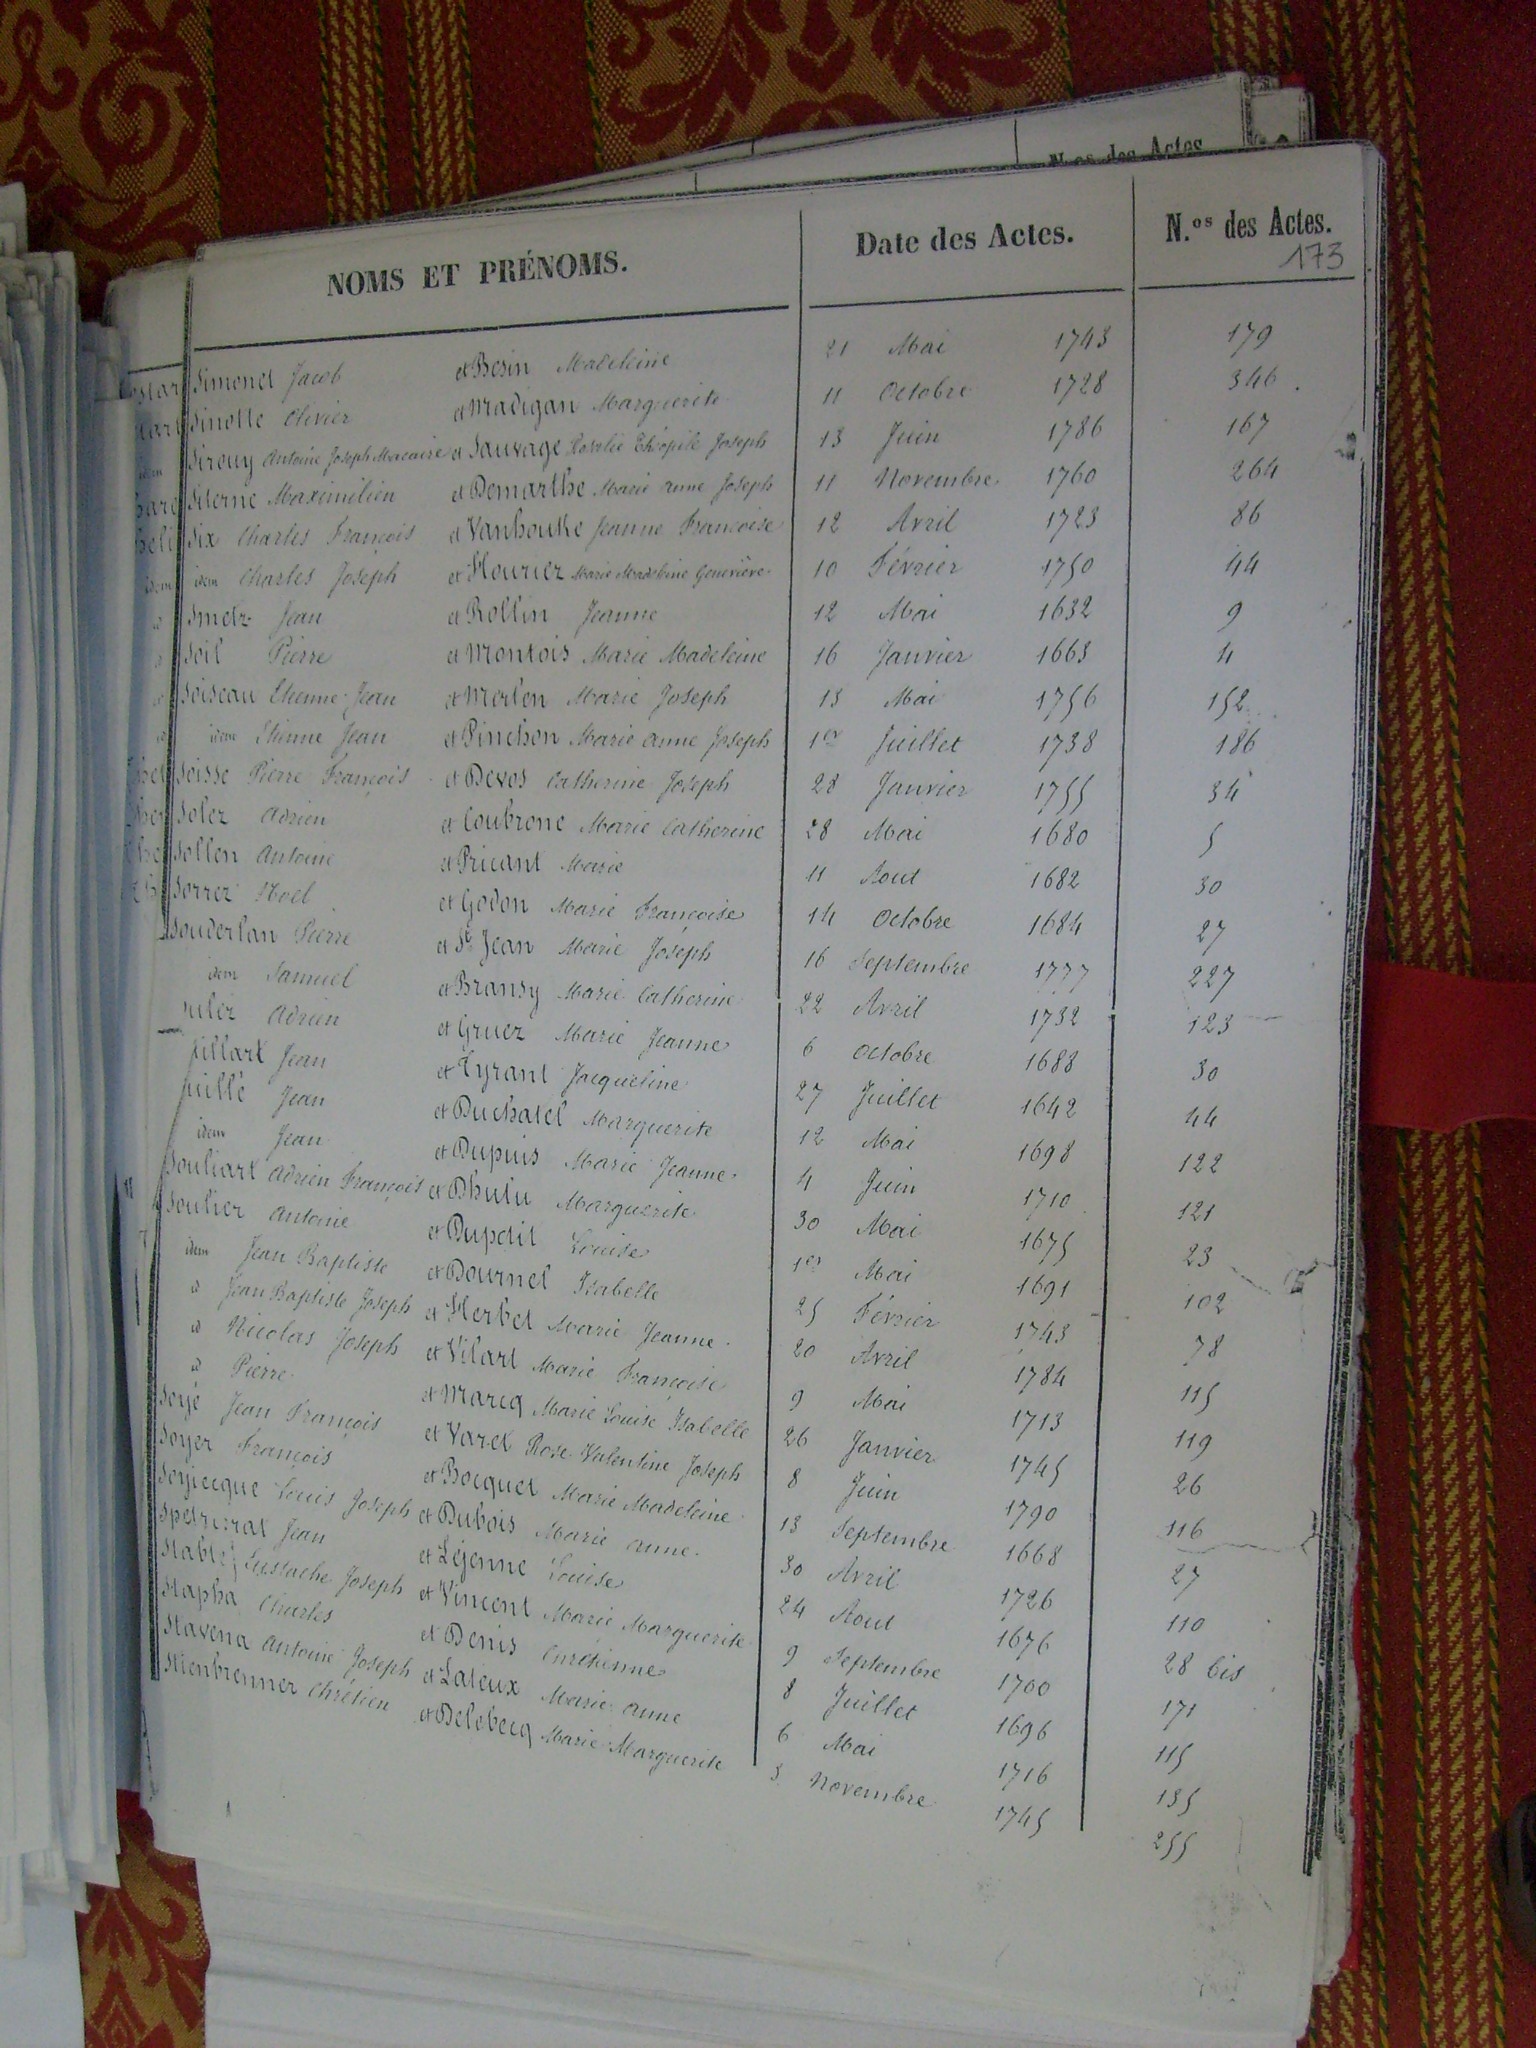 N.os des Actes
NOMS ET PRÉNOMS. Date des Actes. N.os des Actes.
173
Simonet Jacob et Besin Madeleine 21 Mai 1743 179
Sinotte Olivier et Madigan Marguerite 11 Octobre 1728 346
Sirouy Antoine Joseph Macaire et Sauvage Rosalie Théopile Joseph 13 Juin 1786 167
Siterne Maximilien et Demarthe Marie Anne Joseph 11 Novembre 1760 264
Six Charles François et Vanhoutte Jeanne Françoise 12 Avril 1723 86
idem Charles Joseph et Flouriez Marie Madeleine Geneviève 10 Février 1750 44
Smetz Jean et Rollin Jeanne 12 Mai 1632 9
Soil Pierre et Montois Marie Madeleine 16 Janvier 1663 4
Soiseau Etienne Jean et Merlen Marie Joseph 13 Mai 1756 152
idem Etienne Jean et Pinchon Marie Anne Joseph 1er Juillet 1738 186
Soisse Pierre François et Devos Catherine Joseph 28 Janvier 1755 34
Solez Adrien et Coubronc Marie Catherine 28 Mai 1680 5
Sollen Antoine et Pricant Marie 11 Aout 1682 30
Sorrez Noel et Godon Marie Françoise 14 Octobre 1684 27
Souderlan Pierre et St Jean Marie Joseph 16 Septembre 1777 227
idem Samuel et Bransy Marie Catherine 22 Avril 1732 123
Adrien et Gruez Marie Jeanne 6 Octobre 1688 30
Jean et Tyrant Jacqueline 27 Juillet 1642 44
Jean et Duchatel Marguerite 12 Mai 1698 122
idem Jean et Dupuis Marie Jeanne 4 Juin 1710 121
Souliart Adrien François et Dhulu Marguerite 30 Mai 1675 23
Soulier Antoine et Dupetit Louise 1er Mai 1691 102
idem Jean Baptiste et Dournel Isabelle 25 Février 1743 78
id Jean Baptiste Joseph et Herbet Marie Jeanne 20 Avril 1784 115
id Nicolas Joseph et Vilart Marie Françoise 9 Mai 1713 119
id Pierre et Marcq Marie Louise Isabelle 26 Janvier 1745 26
Soyé Jean François et Varet Rose Valentine Joseph 8 Juin 1790 116
Soyer François et Bocquet Marie Madeleine 13 Septembre 1668 27
Louis Joseph et Dubois Marie Anne 30 Avril 1726 110
Jean et Lejenne Louise 24 Aout 1676 28 bis
Stable Eustache Joseph et Vincent Marie Marguerite 9 Septembre 1700 171
Stapha Charles et Denis Chrétienne 8 Juillet 1696 115
Stavena Antoine Joseph et Lateux Marie Anne 6 Mai 1716 135
Stienbrenner Chrétien et Delebecq Marie Marguerite 3 Novembre 1745 255